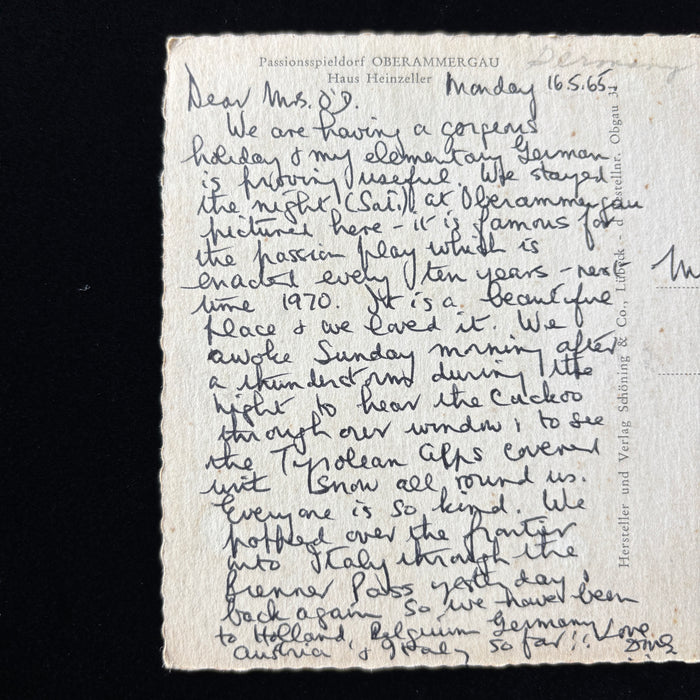 Passionsspieldorf OBERAMMERGAU
Haus Heinzeller
Germany
Monday 16.5.65
Dear Mrs. O'D.
We are having a gorgeous
holiday & my elementary German
is proving useful. We stayed
the night (Sat.) at Oberammergau
pictured here - it is famous for
the passion play which is
enacted every ten years - next
time 1970. It is a beautiful
place & we loved it. We
awoke Sunday morning after
a thunderstorm during the
night to hear the Cuckoo
through our window & to see
the Tyrolean Alps covered
with snow all round us.
Everyone is so kind. We
popped over the frontier
into Italy through the
Brenner Pass yesterday &
back again so we have been
to Holland, Belgium Germany
Austria & Italy so far!! Love
Hersteller und Verlag Schöning & Co., Lübeck - Bestellnr. Obgau
M